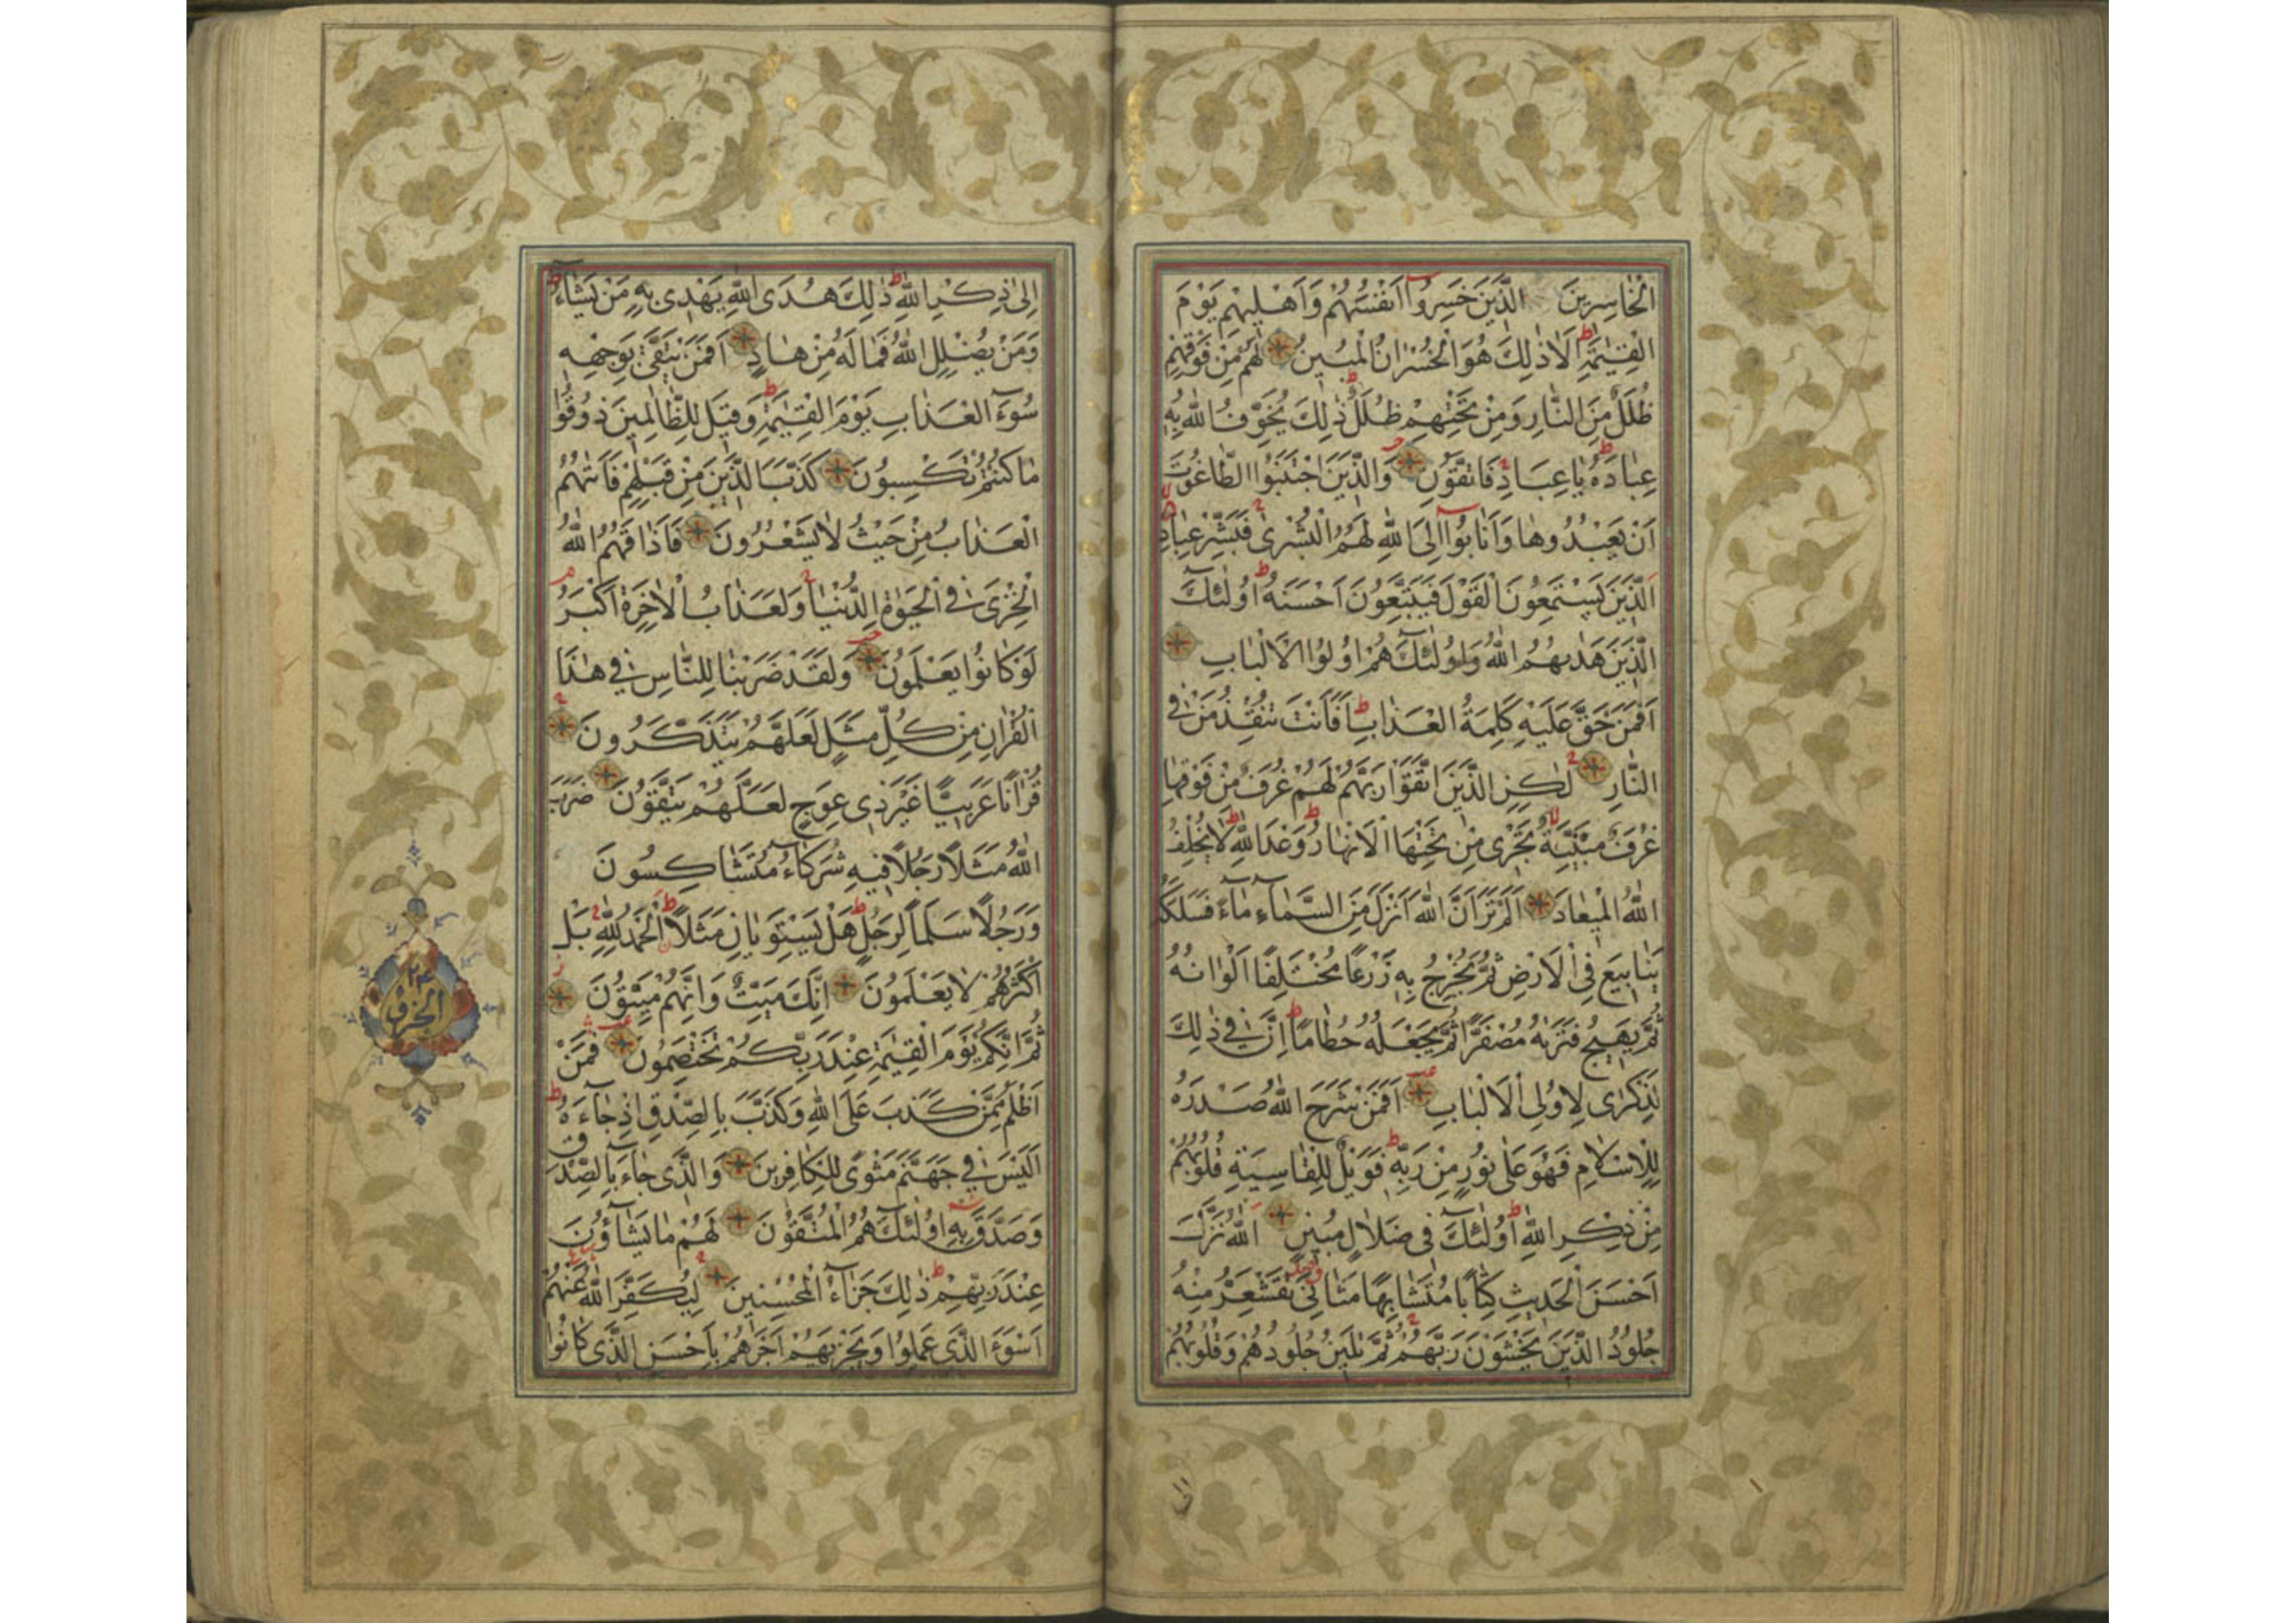 الْخٰاسِرِينَ الَّذِينَ خَسِرُوا اَنْفُسَهُمْ وَاَهْلِيهِمْ يَوْمَ
الْقِيٰمَةِ اَلَا ذٰلِكَ هُوَ الْخُسْرَانُ الْمُبِينُ لَهُمْ مِنْ فَوْقِهِمْ
ظُلَلٌ مِنَ النَّارِ وَمِنْ تَحْتِهِمْ ظُلَلٌ ذٰلِكَ يُخَوِّفُ اللّٰهُ بِهِ
عِبٰادَهُ يٰا عِبٰادِ فَاتَّقُونِ وَالَّذِينَ اجْتَنَبُوا الطّٰاغُوتَ
اَنْ يَعْبُدُوهٰا وَاَنٰابُوا اِلَى اللّٰهِ لَهُمُ الْبُشْرٰى فَبَشِّرْ عِبٰادِ
اَلَّذِينَ يَسْتَمِعُونَ الْقَوْلَ فَيَتَّبِعُونَ اَحْسَنَهُ اُولٰئِكَ
الَّذِينَ هَدٰيهُمُ اللّٰهُ وَاُولٰئِكَ هُمْ اُولُوا الْاَلْبٰابِ
اَفَمَنْ حَقَّ عَلَيْهِ كَلِمَةُ الْعَذٰابِ اَفَاَنْتَ تُنْقِذُ مَنْ فِي
النّٰارِ لٰكِنِ الَّذِينَ اتَّقَوْا رَبَّهُمْ لَهُمْ غُرَفٌ مِنْ فَوْقِهٰا
غُرَفٌ مَبْنِيَّةٌ تَجْرِي مِنْ تَحْتِهَا الْاَنْهٰارُ وَعْدَ اللّٰهِ لٰا يُخْلِفُ
اللّٰهُ الْمِيعٰادَ اَلَمْ تَرَ اَنَّ اللّٰهَ اَنْزَلَ مِنَ السَّمٰاءِ مٰاءً فَسَلَكَهُ
يَنٰابِيعَ فِي الْاَرْضِ ثُمَّ يُخْرِجُ بِهِ زَرْعًا مُخْتَلِفًا اَلْوٰانُهُ
ثُمَّ يَهِيجُ فَتَرٰيهُ مُصْفَرًّا ثُمَّ يَجْعَلُهُ حُطٰامًا اِنَّ فِي ذٰلِكَ
لَذِكْرٰى لِاُولِي الْاَلْبٰابِ اَفَمَنْ شَرَحَ اللّٰهُ صَدْرَهُ
لِلْاِسْلٰامِ فَهُوَ عَلٰى نُورٍ مِنْ رَبِّهِ فَوَيْلٌ لِلْقٰاسِيَةِ قُلُوبُهُمْ
مِنْ ذِكْرِ اللّٰهِ اُولٰئِكَ فِي ضَلٰالٍ مُبِينٍ اَللّٰهُ نَزَّلَ
اَحْسَنَ الْحَدِيثِ كِتٰابًا مُتَشٰابِهًا مَثٰانِيَ تَقْشَعِرُّ مِنْهُ
جُلُودُ الَّذِينَ يَخْشَوْنَ رَبَّهُمْ ثُمَّ تَلِينُ جُلُودُهُمْ وَقُلُوبُهُمْ
اِلٰى ذِكْرِ اللّٰهِ ذٰلِكَ هُدَى اللّٰهِ يَهْدِي بِهِ مَنْ يَشٰاءُ
وَمَنْ يُضْلِلِ اللّٰهُ فَمٰا لَهُ مِنْ هٰادٍ اَفَمَنْ يَتَّقِي بِوَجْهِهِ
سُوءَ الْعَذٰابِ يَوْمَ الْقِيٰمَةِ وَقِيلَ لِلظّٰالِمِينَ ذُوقُوا
مٰا كُنْتُمْ تَكْسِبُونَ كَذَّبَ الَّذِينَ مِنْ قَبْلِهِمْ فَاَتٰيهُمُ
الْعَذٰابُ مِنْ حَيْثُ لٰا يَشْعُرُونَ فَاَذٰاقَهُمُ اللّٰهُ
الْخِزْيَ فِي الْحَيٰوةِ الدُّنْيٰا وَلَعَذٰابُ الْاٰخِرَةِ اَكْبَرُ
لَوْ كٰانُوا يَعْلَمُونَ وَلَقَدْ ضَرَبْنٰا لِلنّٰاسِ فِي هٰذَا
الْقُرْاٰنِ مِنْ كُلِّ مَثَلٍ لَعَلَّهُمْ يَتَذَكَّرُونَ
قُرْاٰنًا عَرَبِيًّا غَيْرَ ذِي عِوَجٍ لَعَلَّهُمْ يَتَّقُونَ ضَرَبَ
اللّٰهُ مَثَلًا رَجُلًا فِيهِ شُرَكٰاءُ مُتَشٰاكِسُونَ
وَرَجُلًا سَلَمًا لِرَجُلٍ هَلْ يَسْتَوِيٰانِ مَثَلًا اَلْحَمْدُ لِلّٰهِ بَلْ
اَكْثَرُهُمْ لٰا يَعْلَمُونَ اِنَّكَ مَيِّتٌ وَاِنَّهُمْ مَيِّتُونَ
ثُمَّ اِنَّكُمْ يَوْمَ الْقِيٰمَةِ عِنْدَ رَبِّكُمْ تَخْتَصِمُونَ فَمَنْ
اَظْلَمُ مِمَّنْ كَذَبَ عَلَى اللّٰهِ وَكَذَّبَ بِالصِّدْقِ اِذْ جٰاءَهُ
اَلَيْسَ فِي جَهَنَّمَ مَثْوًى لِلْكٰافِرِينَ وَالَّذِي جٰاءَ بِالصِّدْقِ
وَصَدَّقَ بِهِ اُولٰئِكَ هُمُ الْمُتَّقُونَ لَهُمْ مٰا يَشٰاؤُنَ
عِنْدَ رَبِّهِمْ ذٰلِكَ جَزٰاءُ الْمُحْسِنِينَ لِيُكَفِّرَ اللّٰهُ عَنْهُمْ
اَسْوَءَ الَّذِي عَمِلُوا وَيَجْزِيَهُمْ اَجْرَهُمْ بِاَحْسَنِ الَّذِي كٰانُوا
۲۴
الجزو